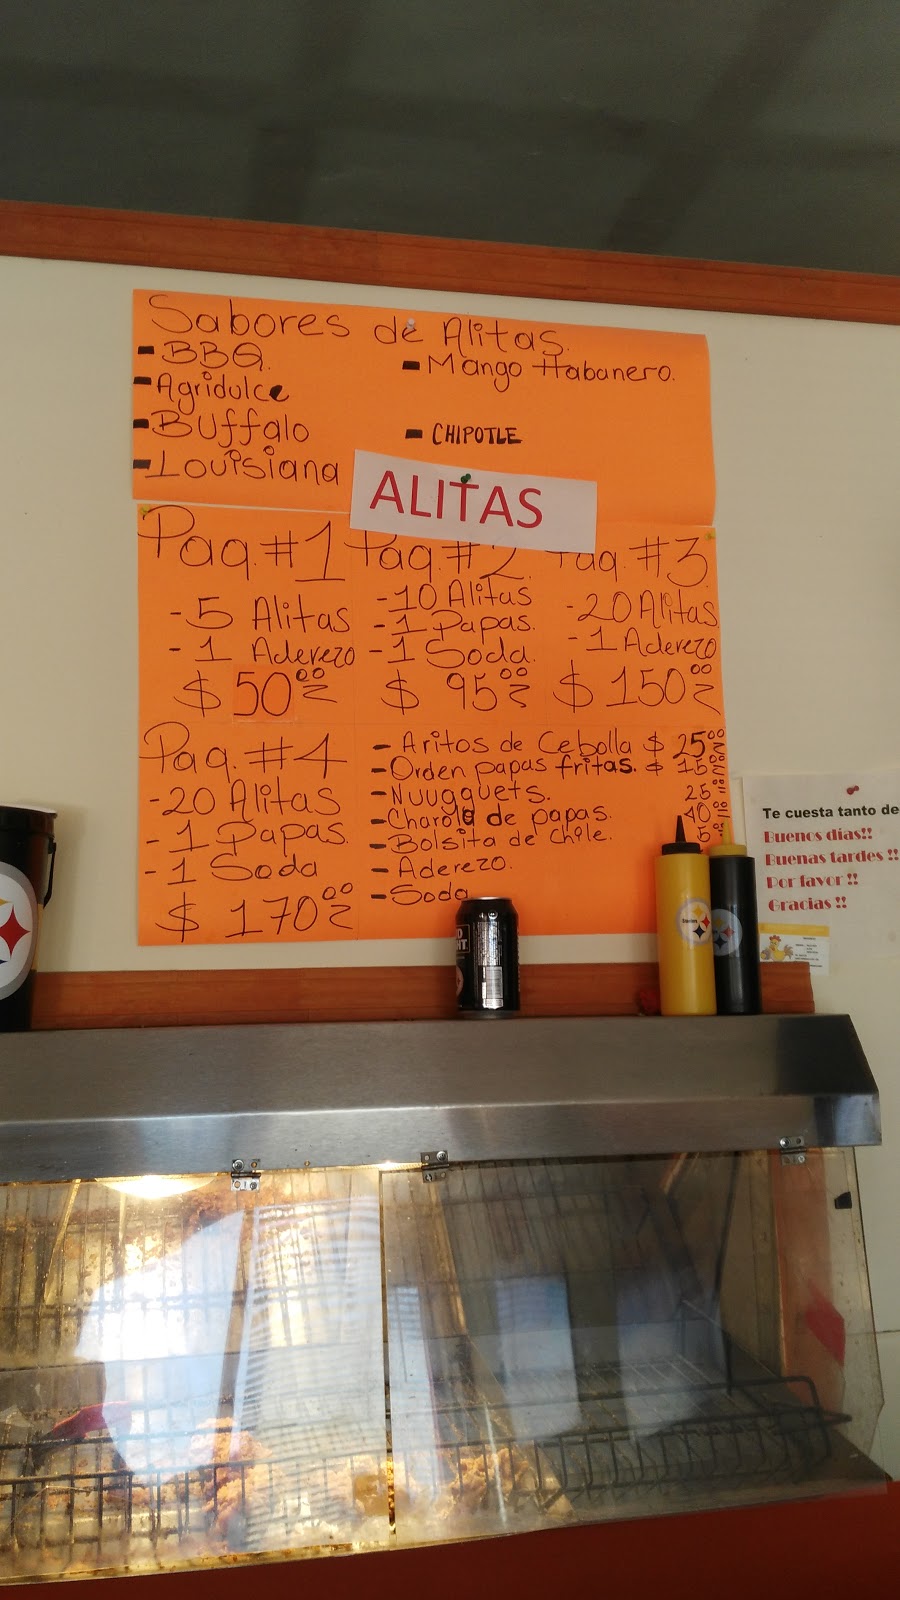 Sabores de Alitas.
- BBQ.
- Agridulce
- Buffalo
- Louisiana
- Mango Habanero.
- CHIPOTLE
ALITAS
Paq. #1
- 5 Alitas
- 1 Aderezo
$ 50.00
Paq. #2
- 10 Alitas
- 1 Papas.
- 1 Soda.
$ 95.00
Paq. #3
- 20 Alitas
- 1 Aderezo
$ 150.00
Paq. #4
- 20 Alitas
- 1 Papas.
- 1 Soda
$ 170.00
- Aritos de Cebolla $ 25.00
- Orden papas fritas. $ 15.00
- Nuugguets. 25
- Charola de papas. 40
- Bolsita de chile. 5
- Aderezo.
- Soda
Te cuesta tanto de
Buenos días!!
Buenas tardes !!
Por favor !!
Gracias !!